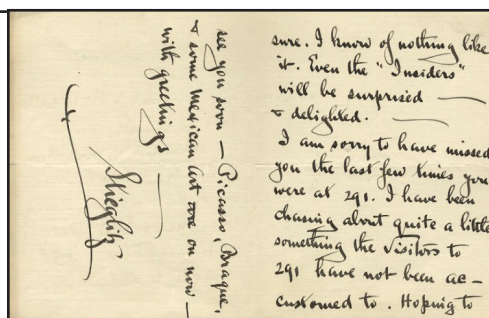 sure. I know of nothing like
it. Even the "Insiders"
will be surprised —
& delighted. —
I am sorry to have missed
you the last few times you
were at 291. I have been
chasing about quite a little
something the visitors to
291 have not been ac-
customed to. Hoping to
see you soon — Picasso, Braque,
& some Mexican art are on now —
with greetings —
Stieglitz